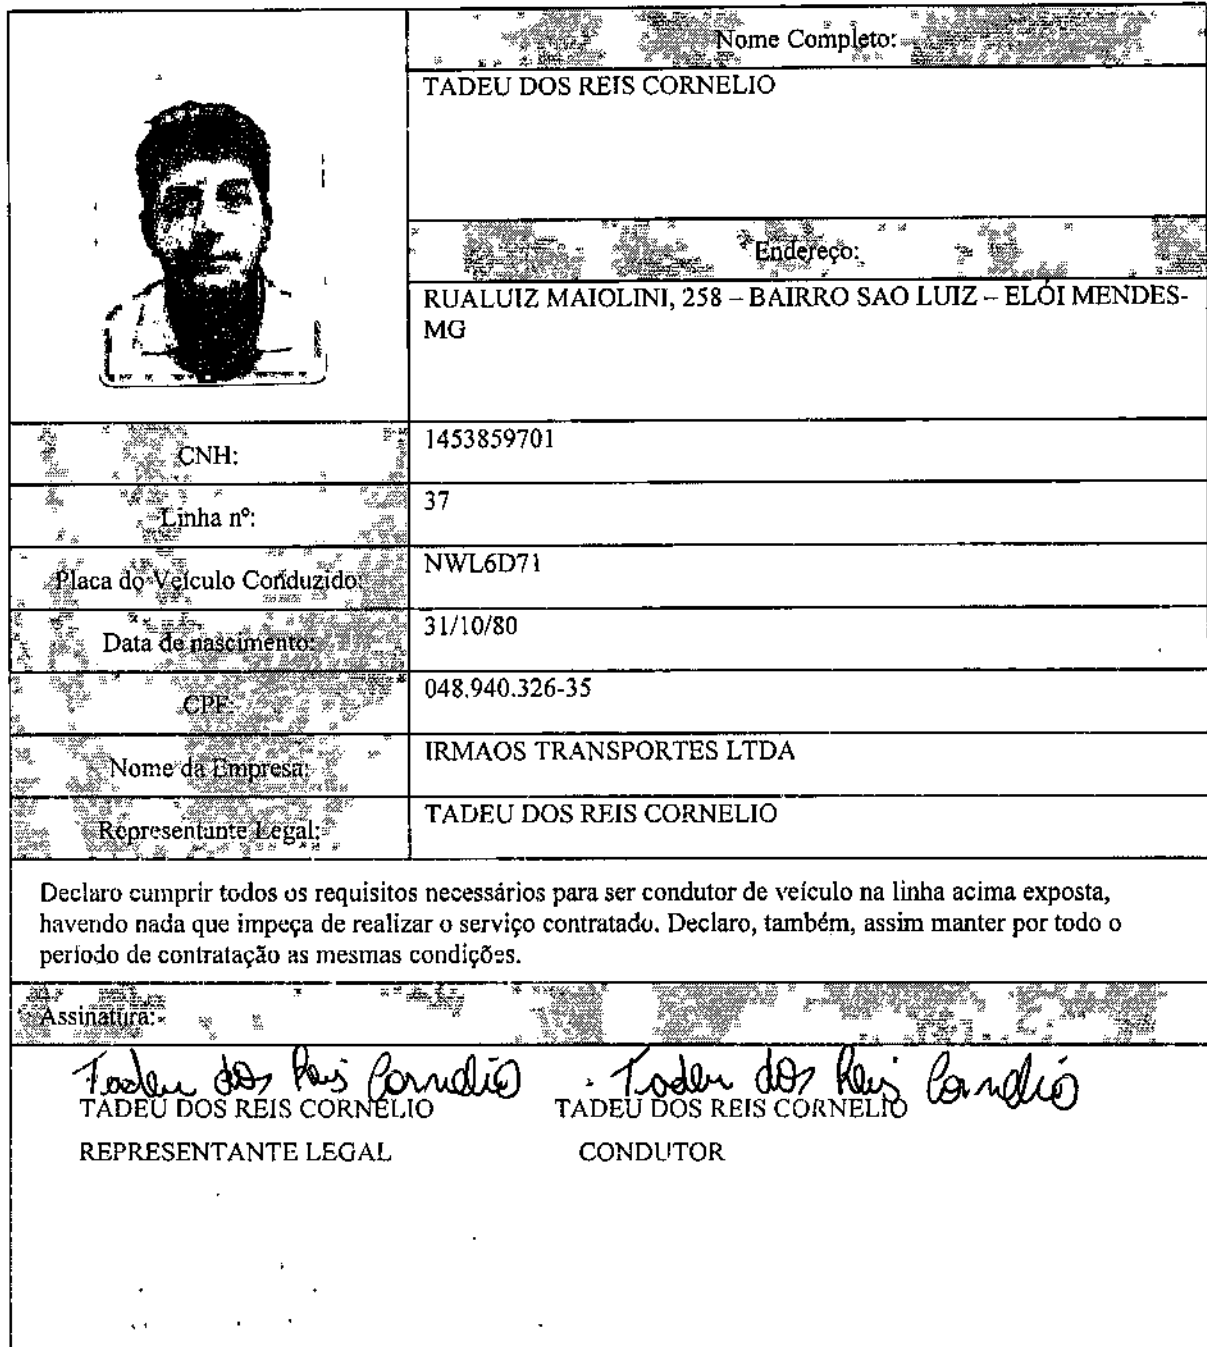 Nome Completo:
TADEU DOS REIS CORNELIO
Endereço:
RUALUIZ MAIOLINI, 258 – BAIRRO SAO LUIZ – ELÓI MENDES-
MG
CNH:
1453859701
Linha nº:
37
Placa do Veículo Conduzido:
NWL6D71
Data de nascimento:
31/10/80
CPF:
048.940.326-35
Nome da Empresa:
IRMAOS TRANSPORTES LTDA
Representante Legal:
TADEU DOS REIS CORNELIO
Declaro cumprir todos os requisitos necessários para ser condutor de veículo na linha acima exposta,
havendo nada que impeça de realizar o serviço contratado. Declaro, também, assim manter por todo o
período de contratação as mesmas condições.
Assinatura:
Tadeu dos Reis Cornelio Tadeu dos Reis Cornelio
TADEU DOS REIS CORNELIO TADEU DOS REIS CORNELIO
REPRESENTANTE LEGAL CONDUTOR